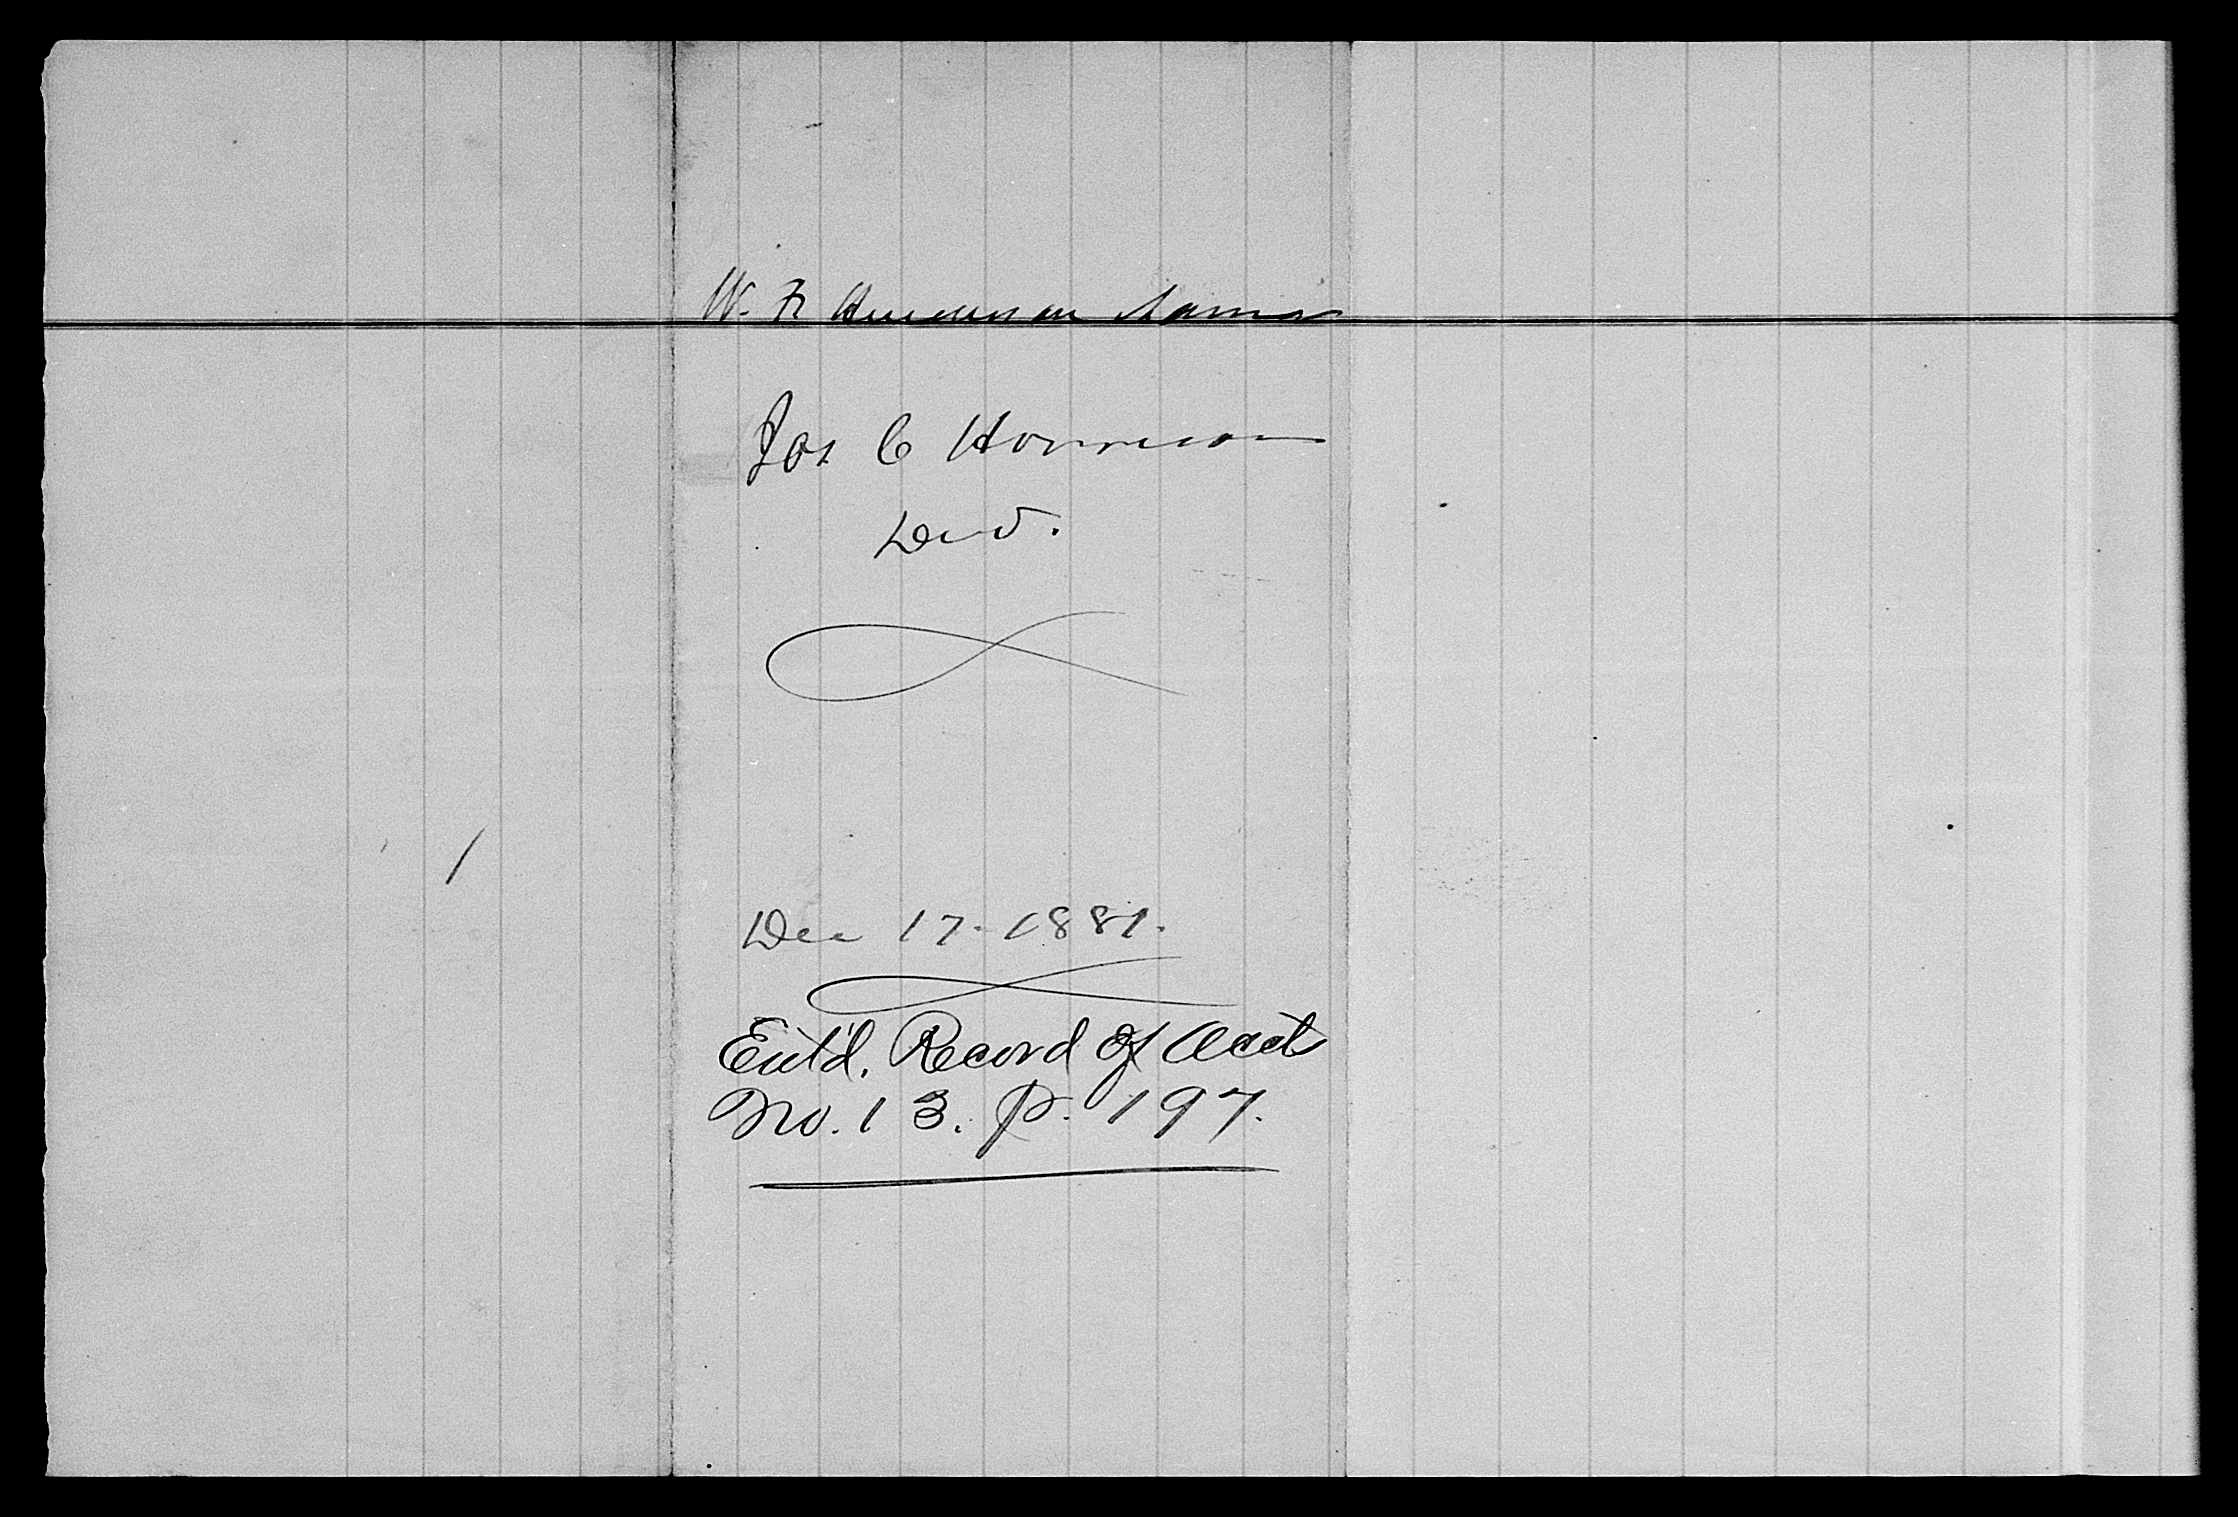 W. F. Henderson Admr
Jos C Harrison
Decd.
Dec 17. 1881.
Ent'd. Record of Acct
No. 13. p. 197.